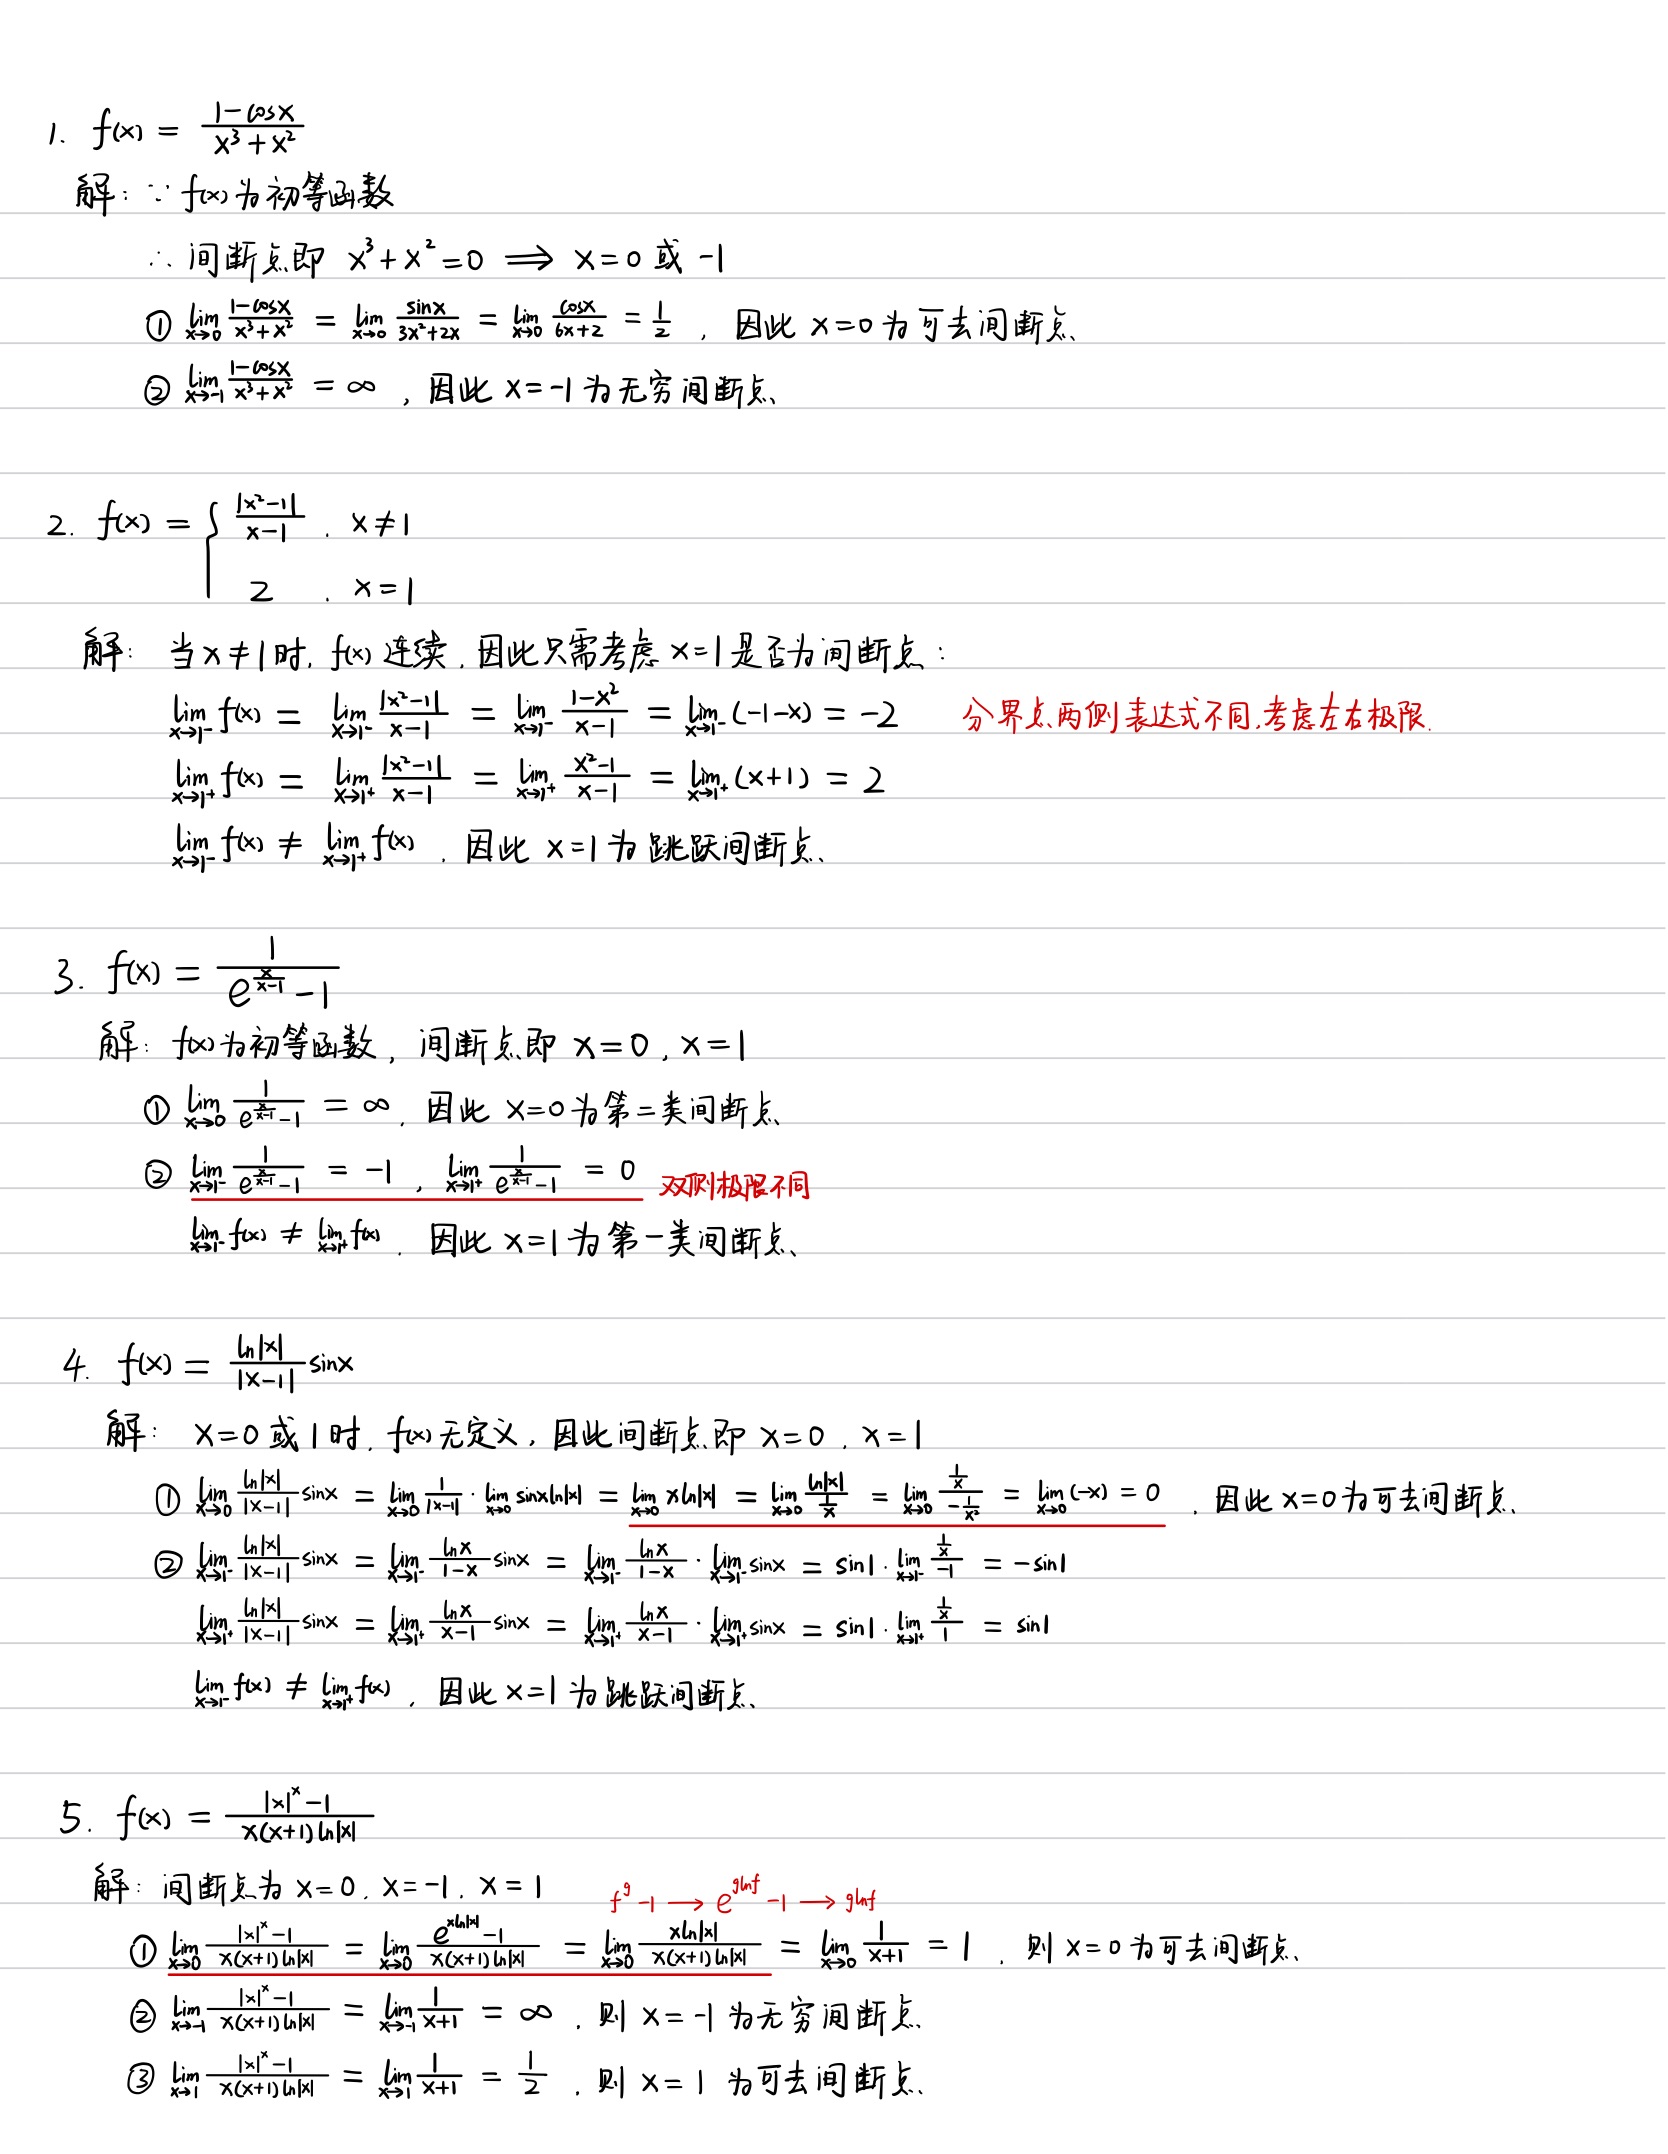 1. f(x) = (1-cosx)/(x³+x²)
解: ∵ f(x)为初等函数
∴ 间断点即 x³+x²=0 ⟹ x=0 或 -1
① lim_{x→0} (1-cosx)/(x³+x²) = lim_{x→0} sinx/(3x²+2x) = lim_{x→0} cosx/(6x+2) = 1/2 , 因此 x=0 为可去间断点、
② lim_{x→-1} (1-cosx)/(x³+x²) = ∞ , 因此 x=-1 为无穷间断点、
2. f(x) = { |x²-1|/(x-1) , x≠1
2 , x=1
解: 当x≠1时, f(x) 连续, 因此只需考虑 x=1是否为间断点:
lim_{x→1⁻} f(x) = lim_{x→1⁻} |x²-1|/(x-1) = lim_{x→1⁻} (1-x²)/(x-1) = lim_{x→1⁻} (-1-x) = -2 分界点、两侧表达式不同,考虑左右极限.
lim_{x→1⁺} f(x) = lim_{x→1⁺} |x²-1|/(x-1) = lim_{x→1⁺} (x²-1)/(x-1) = lim_{x→1⁺} (x+1) = 2
lim_{x→1⁻} f(x) ≠ lim_{x→1⁺} f(x) , 因此 x=1为 跳跃间断点、
3. f(x) = 1/(e^{x/(x-1)} -1)
解: f(x)为初等函数, 间断点即 x=0, x=1
① lim_{x→0} 1/(e^{x/(x-1)} -1) = ∞, 因此 x=0为第二类间断点、
② lim_{x→1⁻} 1/(e^{x/(x-1)} -1) = -1 , lim_{x→1⁺} 1/(e^{x/(x-1)} -1) = 0 双侧极限不同
lim_{x→1⁻} f(x) ≠ lim_{x→1⁺} f(x) , 因此 x=1为第一类间断点、
4. f(x) = ln|x|/|x-1| sinx
解: x=0或1时, f(x)无定义, 因此间断点即 x=0, x=1
① lim_{x→0} ln|x|/|x-1| sinx = lim_{x→0} 1/|x-1| · lim_{x→0} sinxln|x| = lim_{x→0} xln|x| = lim_{x→0} ln|x|/(1/x) = lim_{x→0} (1/x)/(-1/x²) = lim_{x→0} (-x) = 0 , 因此x=0为可去间断点、
② lim_{x→1⁻} ln|x|/|x-1| sinx = lim_{x→1⁻} lnx/(1-x) sinx = lim_{x→1⁻} lnx/(1-x) · lim_{x→1⁻} sinx = sin1 · lim_{x→1⁻} (1/x)/(-1) = -sin1
lim_{x→1⁺} ln|x|/|x-1| sinx = lim_{x→1⁺} lnx/(x-1) sinx = lim_{x→1⁺} lnx/(x-1) · lim_{x→1⁺} sinx = sin1 · lim_{x→1⁺} (1/x)/1 = sin1
lim_{x→1⁻} f(x) ≠ lim_{x→1⁺} f(x) , 因此x=1为跳跃间断点、
5. f(x) = (|x|^x -1)/(x(x+1)ln|x|)
解: 间断点为 x=0, x=-1, x=1
f^g -1 → e^{glnf} -1 → glnf
① lim_{x→0} (|x|^x -1)/(x(x+1)ln|x|) = lim_{x→0} (e^{xln|x|} -1)/(x(x+1)ln|x|) = lim_{x→0} xln|x|/(x(x+1)ln|x|) = lim_{x→0} 1/(x+1) = 1 , 则 x=0为可去间断点、
② lim_{x→-1} (|x|^x -1)/(x(x+1)ln|x|) = lim_{x→-1} 1/(x+1) = ∞ , 则 x=-1 为无穷间断点、
③ lim_{x→1} (|x|^x -1)/(x(x+1)ln|x|) = lim_{x→1} 1/(x+1) = 1/2 , 则 x=1 为可去间断点、